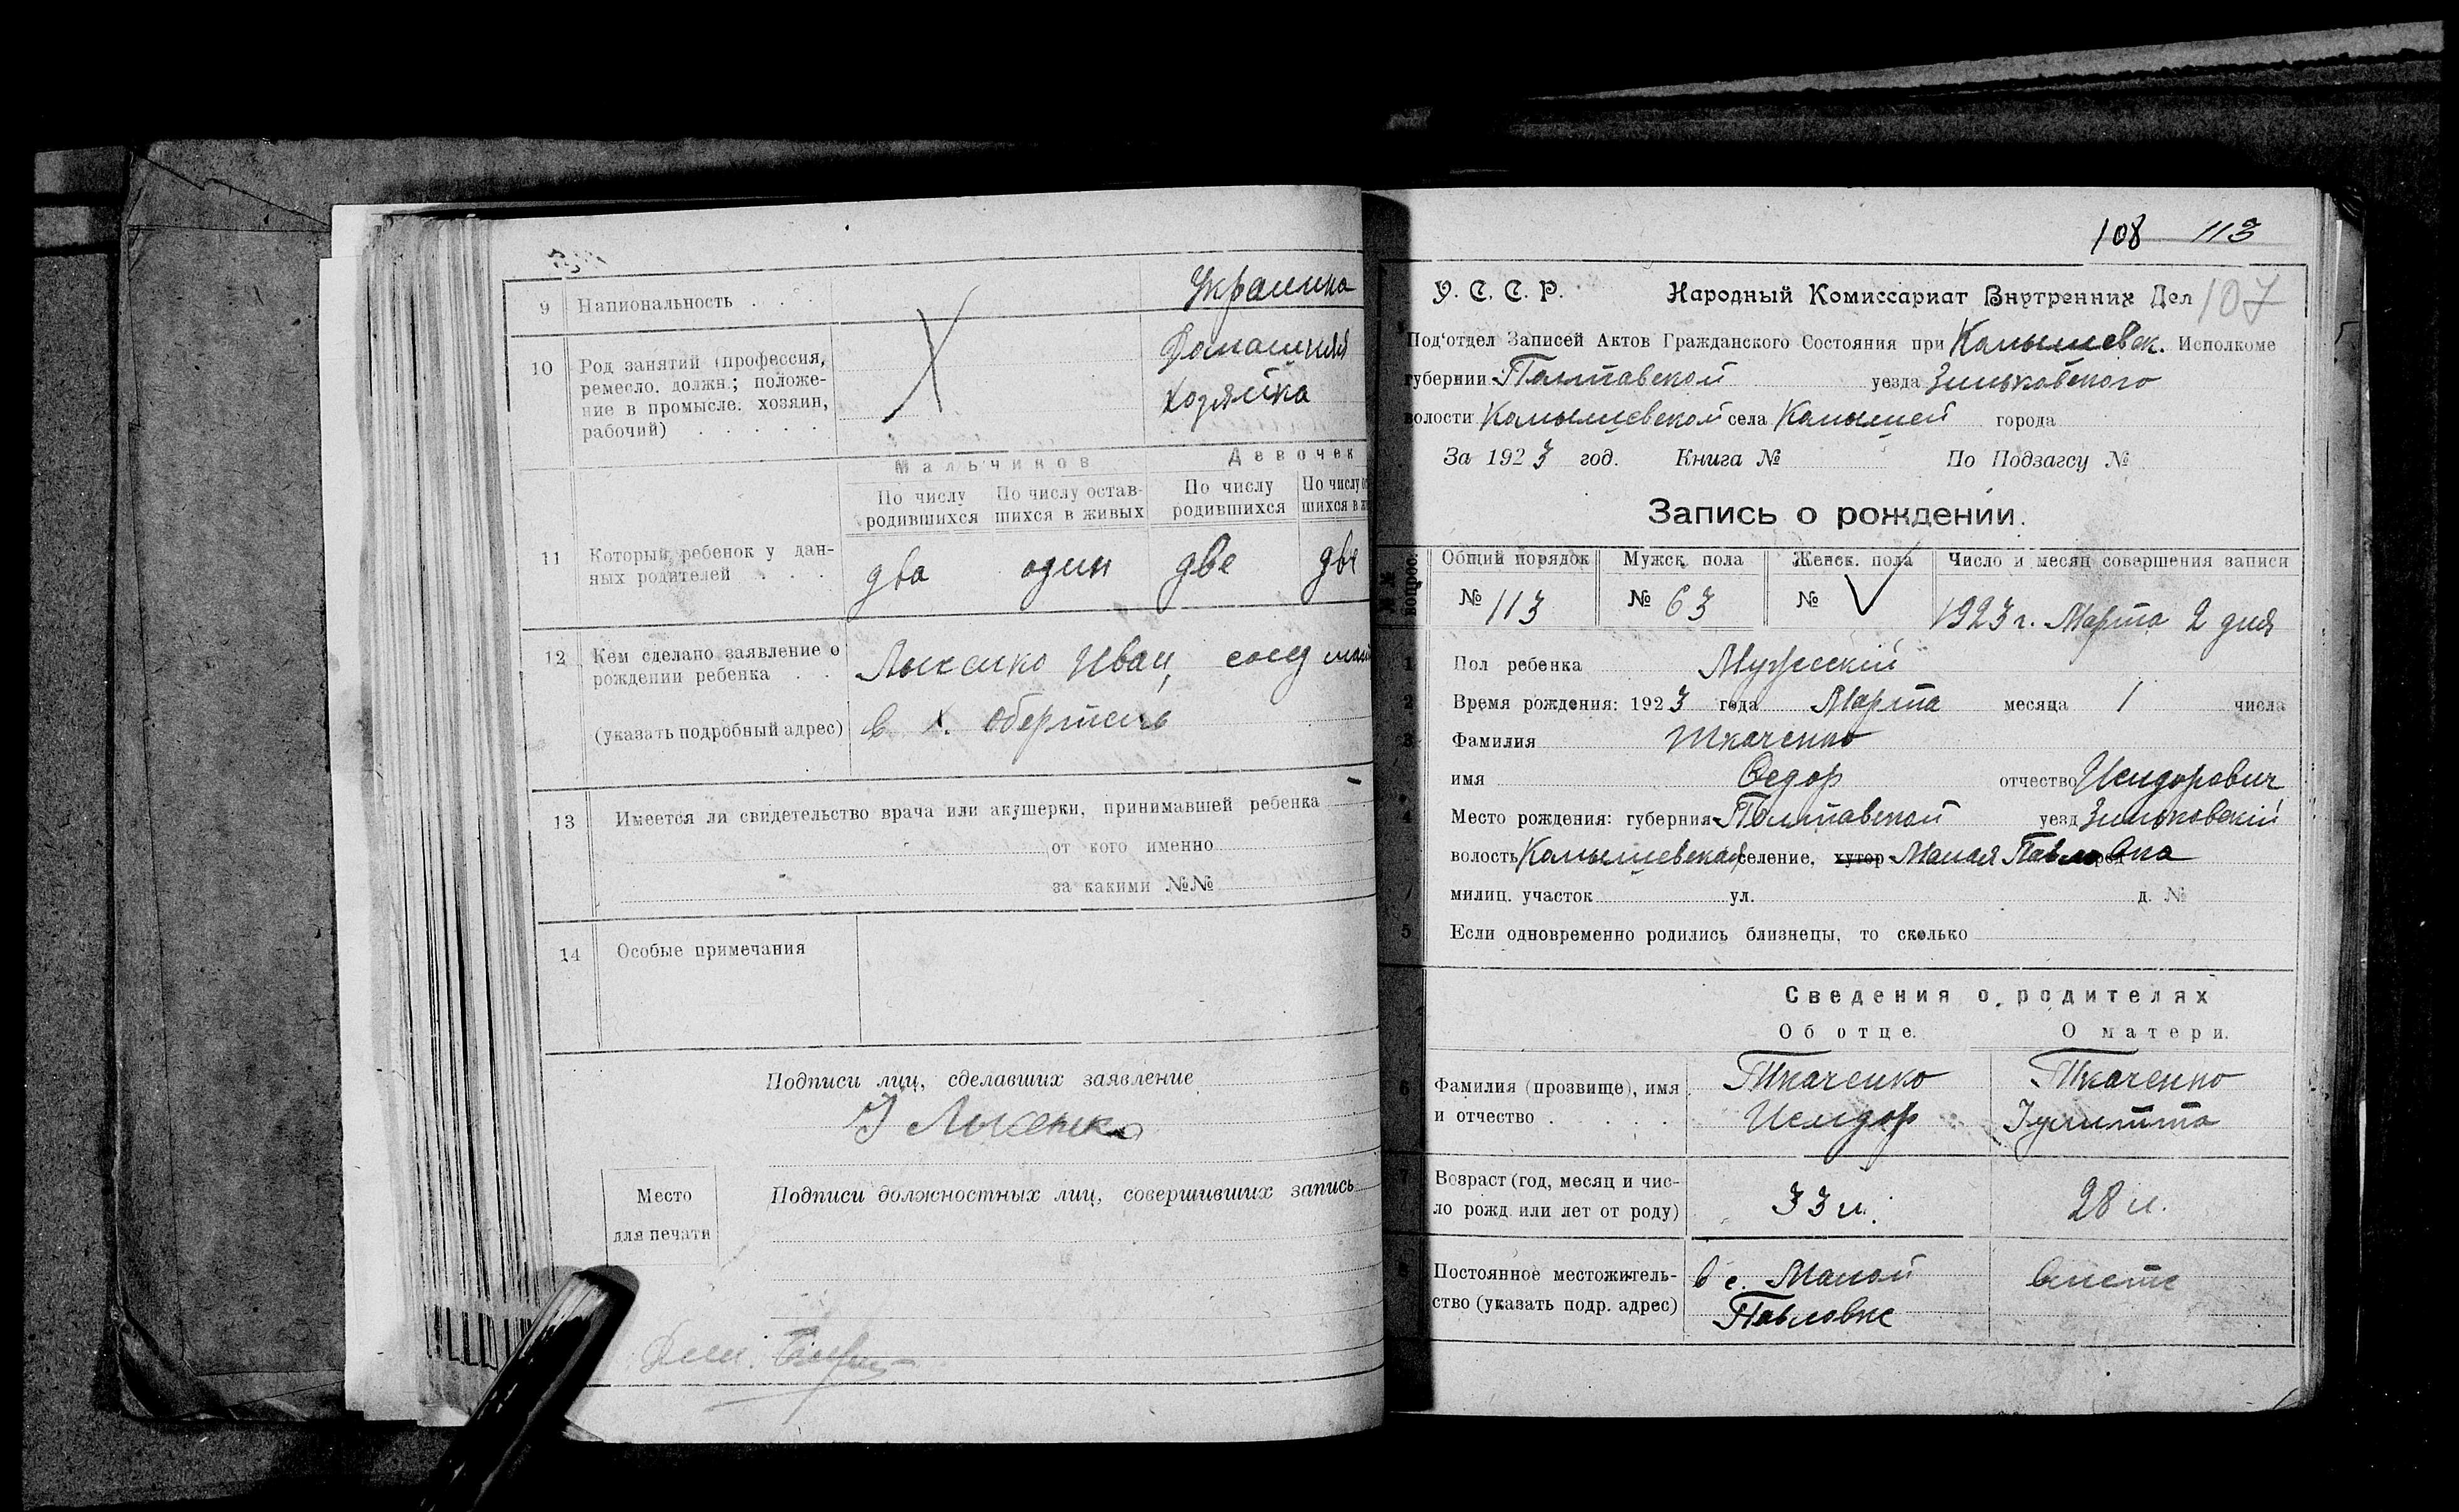 9 Национальность . . . Украинка
10 Род занятий (профессия, Домашняя
ремесло. должн.; положе-
ние в промысле. хозяин, хозяйка
рабочий) . . . . .
Мальчиков Девочек
По числу По числу остав- По числу По числу
родившихся шихся в живых родившихся шихся в
11 Который ребенок у дан-
ных родителей . . . два один две две
12 Кем сделано заявление о
рождении ребенка . . Лысенко Иван,
(указать подробный адрес) в х.
13 Имеется ли свидетельство врача или акушерки, принимавшей ребенка —
от кого именно
за какими №№
14 Особые примечания
Подписи лиц, сделавших заявление
И Лысенко
Место
для печати
Подписи должностных лиц, совершивших запись
108 113
У. С. С. Р. Народный Комиссариат Внутренних Дел 107
Под'отдел Записей Актов Гражданского Состояния при Камышевск. Исполкоме
губернии Полтавской уезда Зиньковского
волости Камышевской села Камышей города
За 1923 год. Книга № По Подзагсу №
Запись о рождении.
№№ вопрос. Общий порядок Мужск. пола Женск. пола Число и месяц совершения записи
№ 113 № 63 № 1923 г. Марта 2 дня
1 Пол ребенка Мужескій
2 Время рождения: 1923 года Марта месяца 1 числа
3 Фамилия Ткаченко
имя Федор отчество Исидорович
4 Место рождения: губерния Полтавской уезд Зиньковскій
волость Камышевская селение, хутор Малая Павловка
милиц. участок ул. д. №
5 Если одновременно родились близнецы, то сколько
Сведения о родителях
Об отце. О матери.
6 Фамилия (прозвище), имя Ткаченко Ткаченко
и отчество . . . . Исидор Іулитта
7 Возраст (год, месяц и чис-
ло рожд. или лет от роду) 33 л. 28 л.
8 Постоянное местожитель- в с. Малой вместе
ство (указать подр. адрес) Павловке